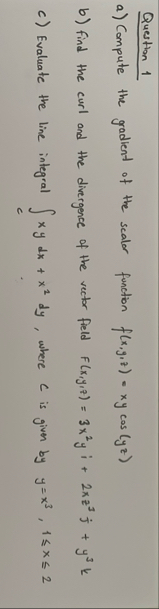 Question 1
a) Compute the gradient of the scalar function f(x,y,z) = xy cos(yz)
b) find the curl and the divergence of the vector field F(x,y,z) = 3x²y i + 2xz³ j + y³ k
c) Evaluate the line integral ∫_C xy dx + x² dy, where C is given by y=x³, 1≤x≤2